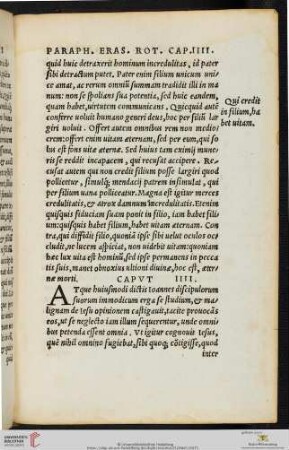 PARAPH. ERAS. ROT. CAP. IIII.
quid huic detraxerit hominum incredulitas, id pater
sibi detractum putet. Pater enim filium unicum uni-
ce amat, ac rerum omniũ summam tradidit illi in ma
num: non se spolians sua potentia, sed huic eandem,
quam habet, uirtutem communicans. Quicquid autẽ
conferre uoluit humano generi deus, hoc per filiũ lar
giri uoluit. Offert autem omnibus rem non medio-
crem: offert enim uitam aeternam, sed per eum, qui so
lus est fons uitæ æternæ. Sed huius tam eximij mune
ris se reddit incapacem, qui recusat accipere. Re
cusat autem qui non credit filium posse largiri quod
pollicetur, simulq; mendacij patrem insimulat, qui
per filium uana polliceatur. Magna est igitur merces
credulitatis, & atrox damnum incredulitatis. Etenim
quisquis fiduciam suam ponit in filio, iam habet filiu
um: quisquis habet filium, habet uitam æternam. Con
tra, qui diffidit filio, quoniã ipse sibi uelut oculos oc
cludit, ne lucem aspiciat, non uidebit uitam: quoniam
hæc lux uita est hominũ, sed ipse permanens in pecca
tis suis, manet obnoxius ultioni diuinæ, hoc est, æter-
næ morti.
Qui credit
in filium, ha
bet uitam.
CAPVT IIII.
ATque huiusmodi dictis Ioannes discipulorum
suorum immodicum erga se studium, & ma
lignam de Iesu opinionem castigauit, tacite prouocãs
eos, ut se neglecto iam illum sequerentur, unde omni
bus petenda essent omnia. Vt igitur cognouit Iesus,
quẽ nihil omnino fugiebat, sibi quoq; cõtigisse, quod
inter